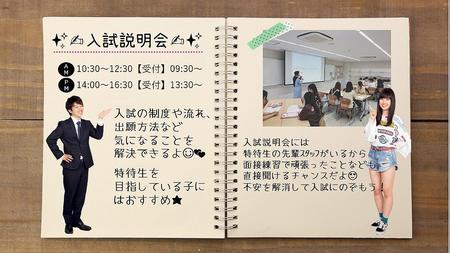 入試説明会
AM 10:30～12:30【受付】09:30～
PM 14:00～16:30【受付】13:30～
入試の制度や流れ、
出願方法など
気になることを
解決できるよ
特待生を
目指している子に
はおすすめ★
入試説明会には
特待生の先輩ｽﾀｯﾌがいるから
面接練習で頑張ったことなども
直接聞けるチャンスだよ
不安を解消して入試にのぞもう！